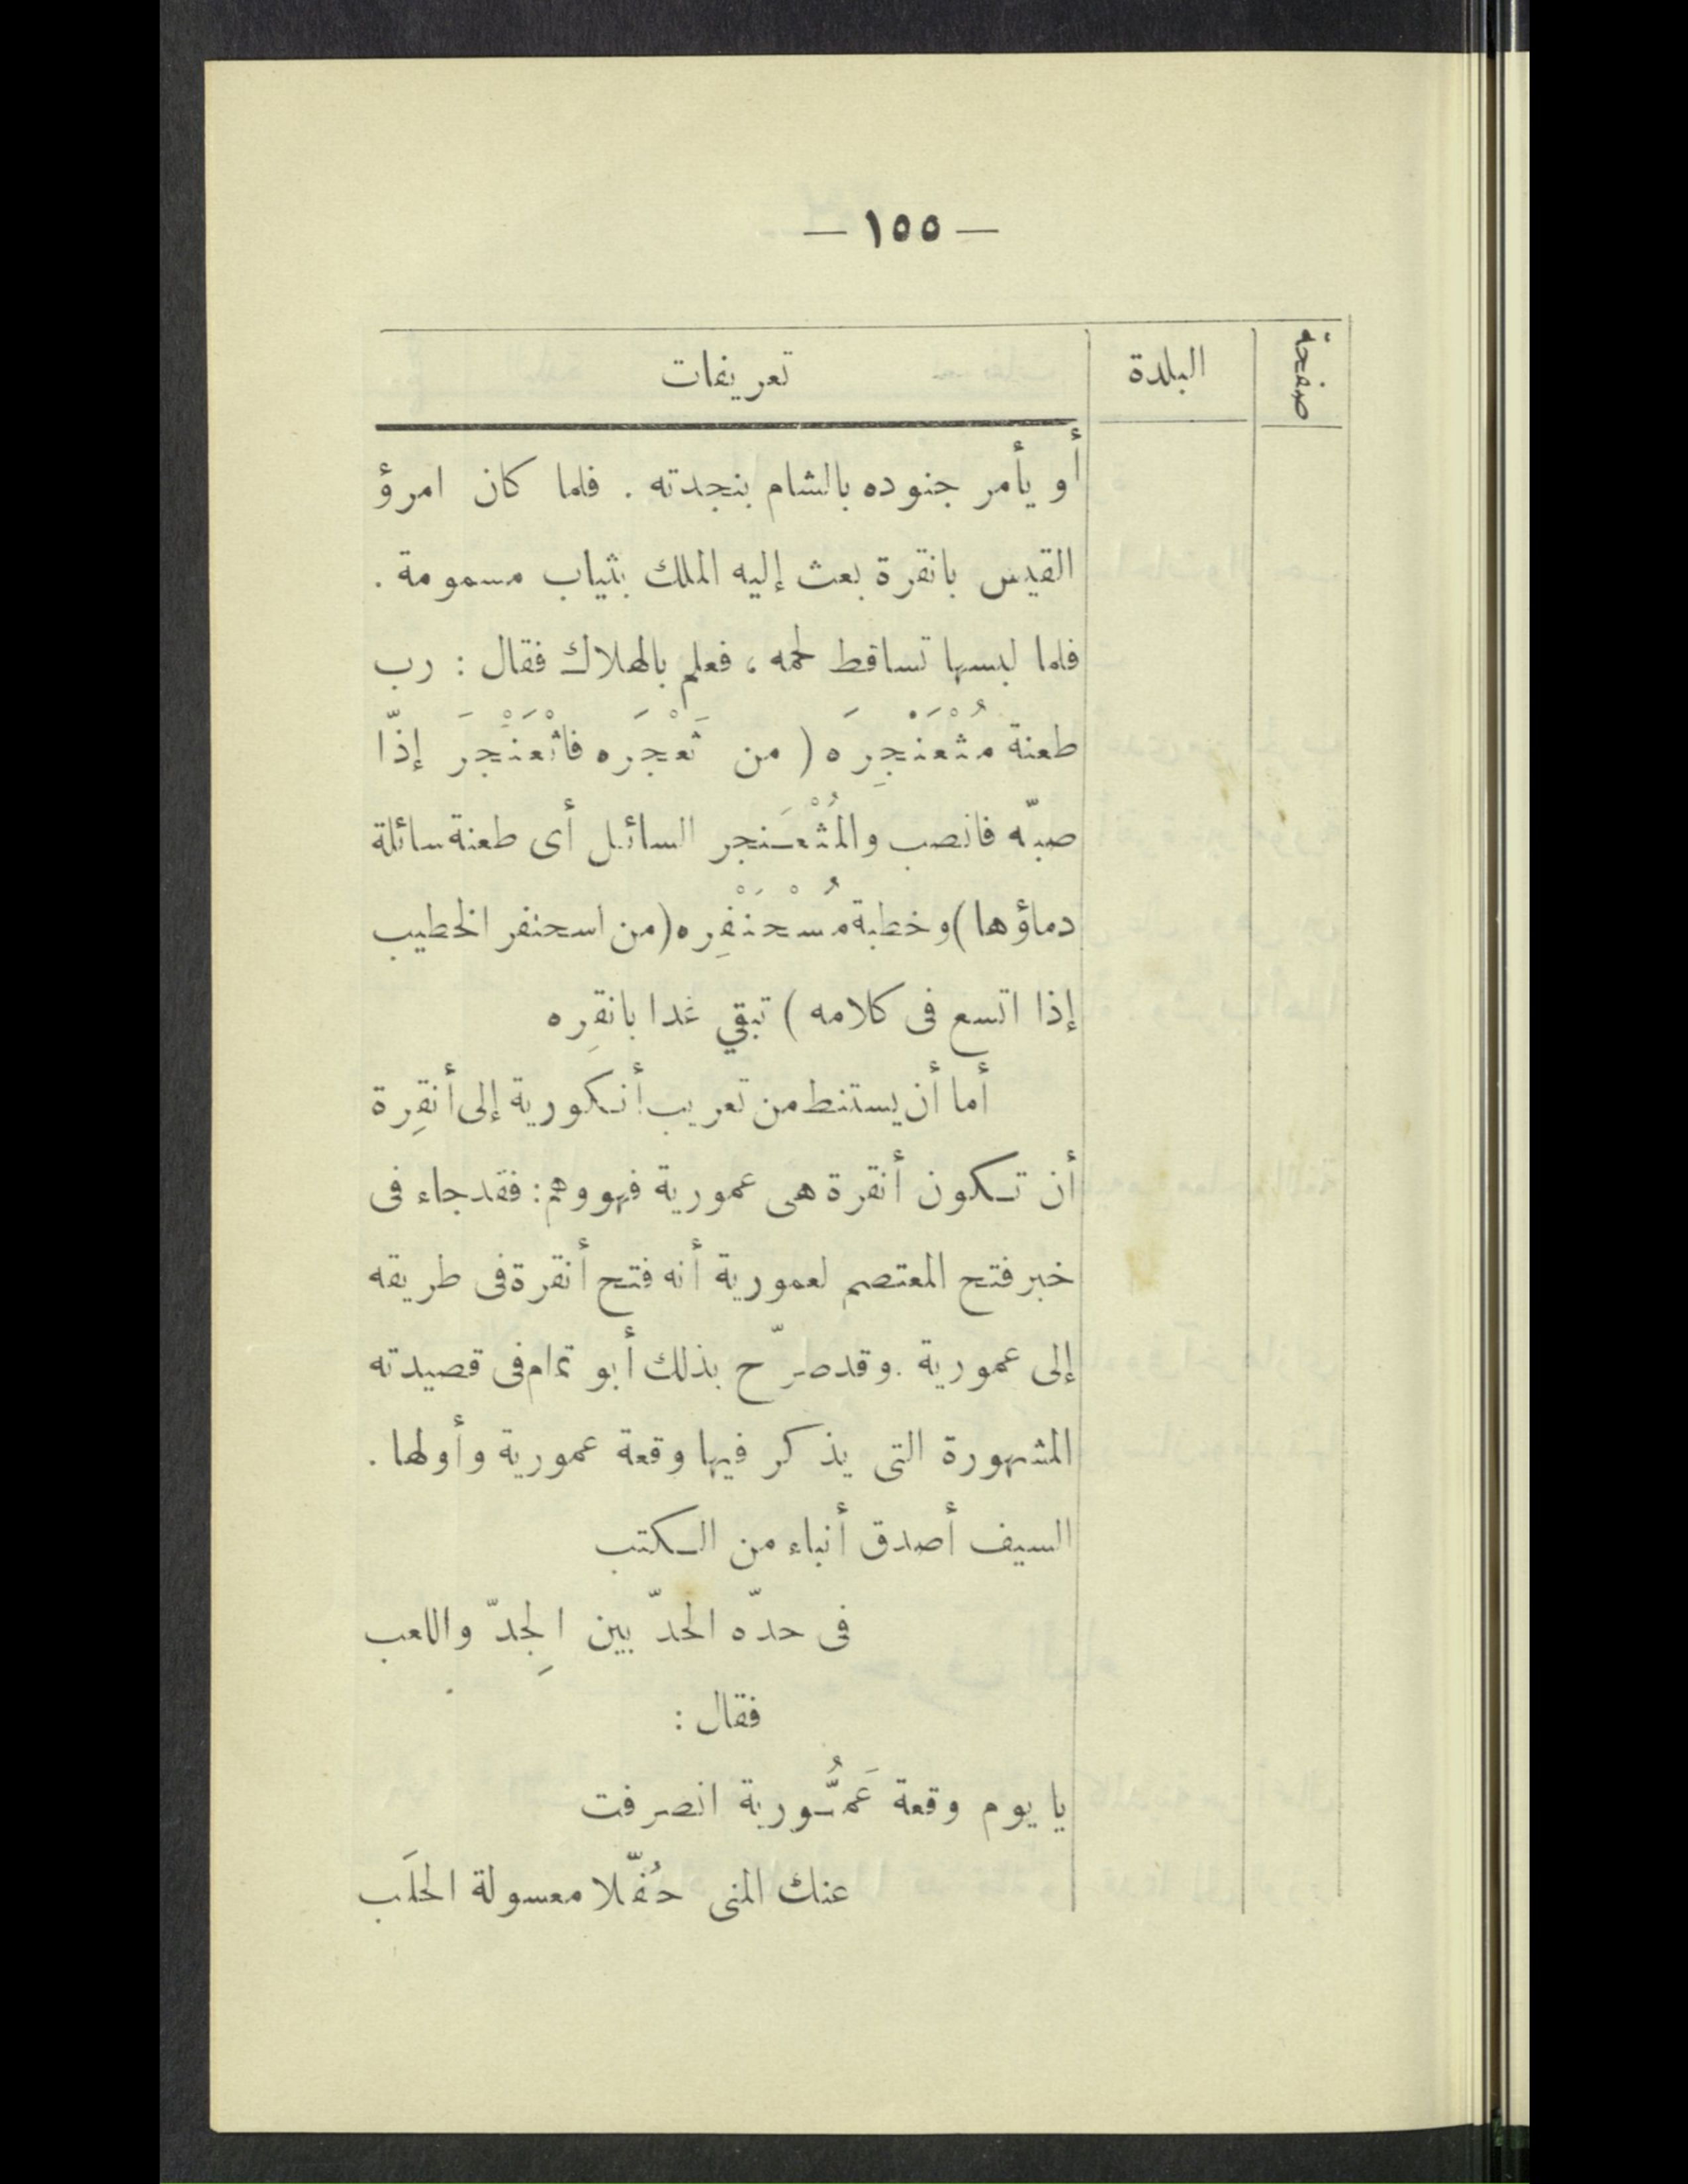 — ١٥٥ —
صفحة البلدة تعريفات
أو يأمر جنوده بالشام بنجدته . فلما كان امرؤ
القيس بانقرة بعث إليه الملك بثياب مسمومة .
فلما لبسها تساقط لحمه ، فعلم بالهلاك فقال : رب
طعنة مُثْعَنْجِرَه ( من ثَعْجَره فاثْعَنْجَرَ إذّا
صبّه فانصب والمُثْعَنجر السائل أى طعنة سائلة
دماؤها ) وخطبة مُسْحَنْفِره ( من اسحنفر الخطيب
إذا اتسع فى كلامه ) تبقي غدا بانقِره
أما أن يستنط من تعريب أنكورية إلى أنقِرة
أن تكون أنقرة هى عمورية فهو وهم : فقد جاء فى
خبر فتح المعتصم لعمورية أنه فتح أنقرة فى طريقه
إلى عمورية . وقد صرّح بذلك أبو تمام فى قصيدته
المشهورة التى يذكر فيها وقعة عمورية وأولها .
السيف أصدق أنباء من الكتب
فى حدّه الحدّ بين الجِدّ واللعب
فقال :
يا يوم وقعة عَمُّورية انصرفت
عنك المنى حُفّلا معسولة الحلَب